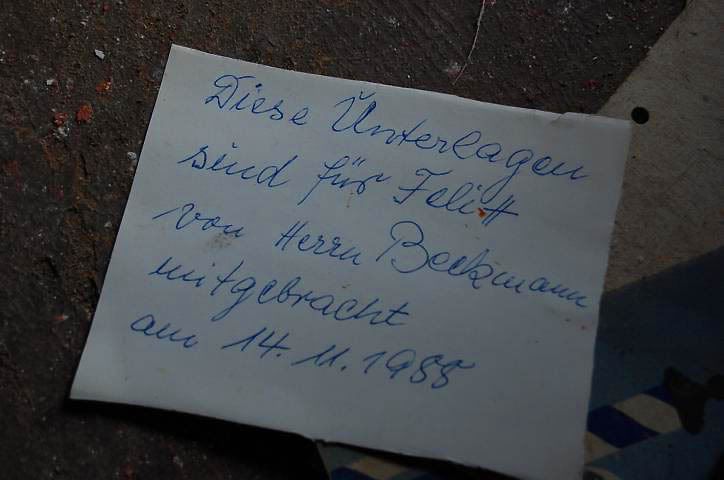 Diese Unterlagen
sind für Felitt
von Herrn Beckmann
mitgebracht
am 14. 11. 1988